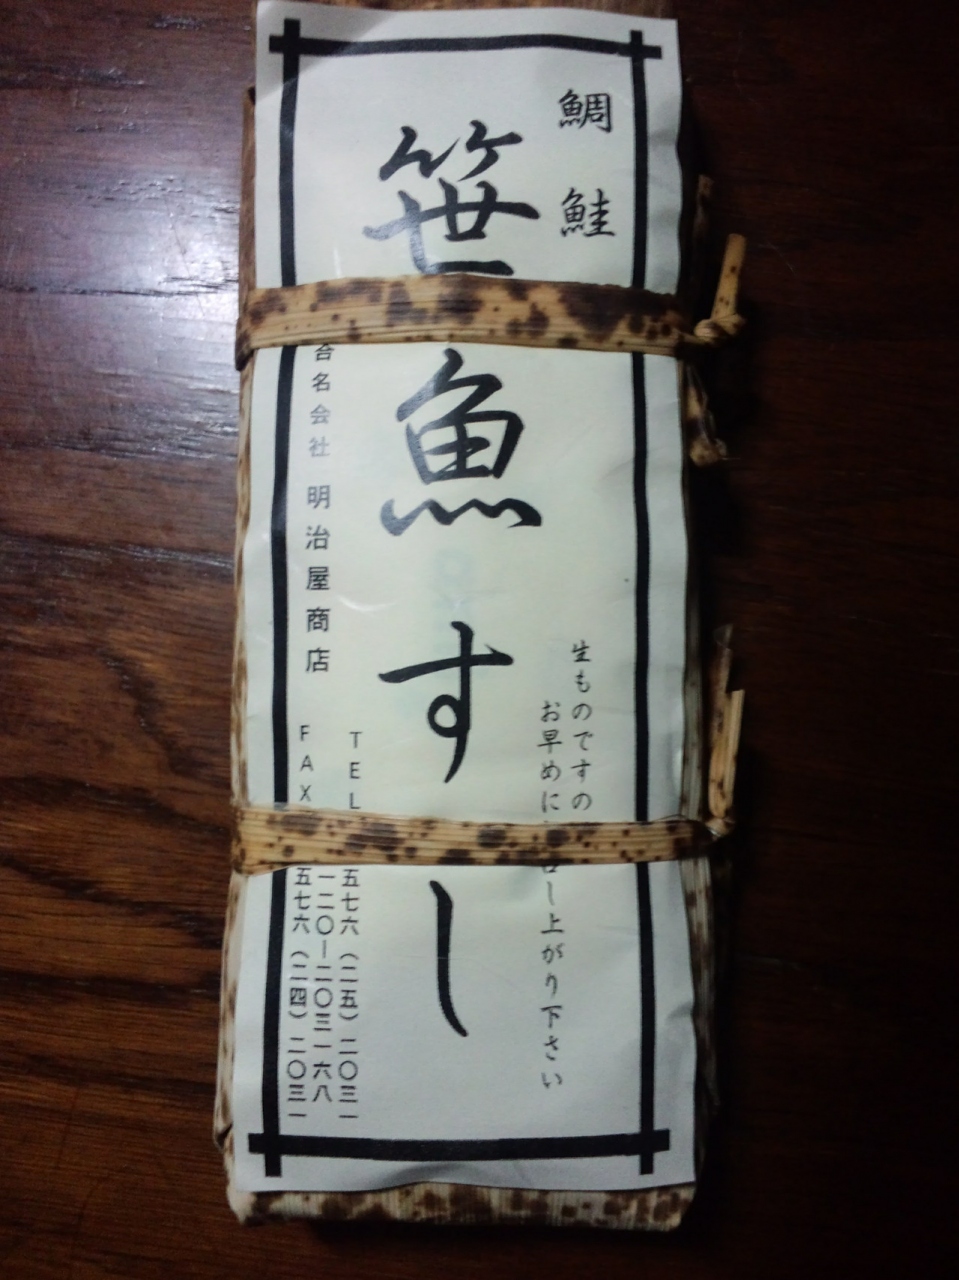 鯛 鮭
笹魚すし
生ものですの
お早めに し上がり下さい
合名会社 明治屋商店
TEL 五七六(二五)二〇三一
一二〇ー二〇三一六八
FAX 五七六(二四)二〇三一